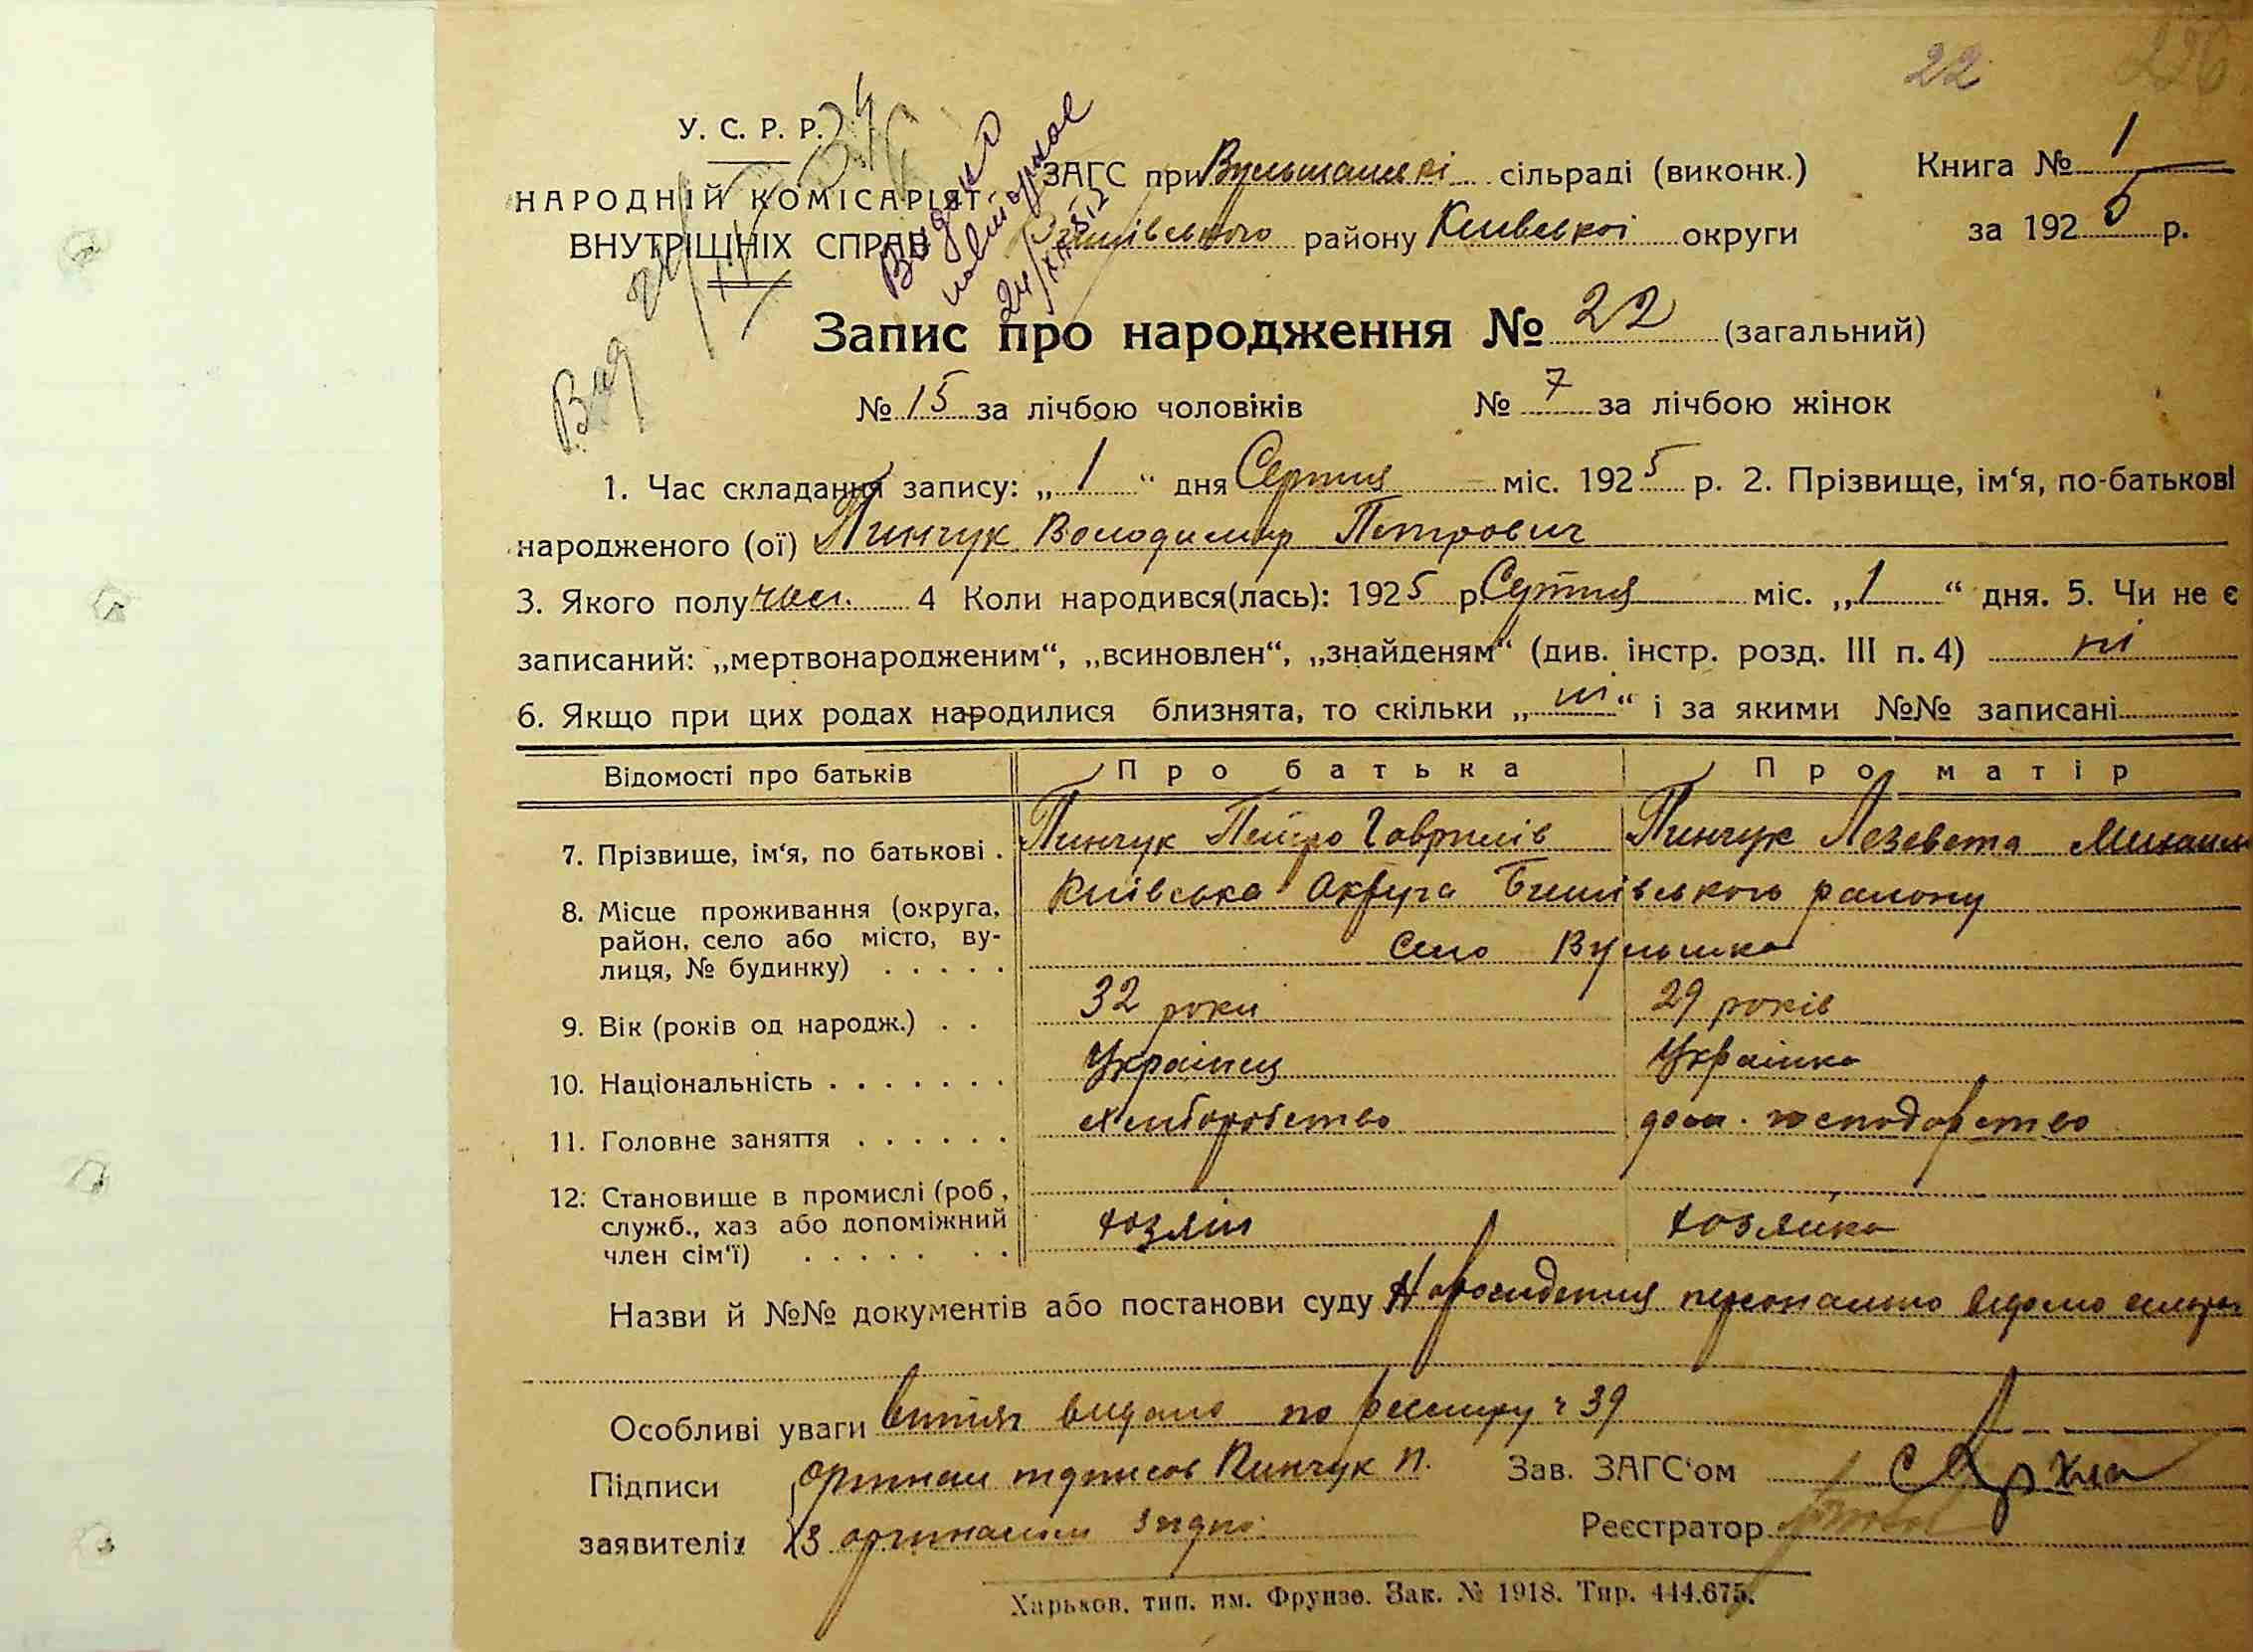 22 226
У. С. Р. Р.
НАРОДНІЙ КОМІСАРІЯТ
ВНУТРІШНІХ СПРАВ
Видано
повторное
24/XII
ЗАГС при Вульшанскі сільраді (виконк.)
району Київської округи
Книга № 1
за 1925 р.
Запис про народження № 22 (загальний)
№ 15 за лічбою чоловіків № 7 за лічбою жінок
1. Час складання запису: „ 1 “ дня Серпня міс. 1925 р. 2. Прізвище, ім‘я, по-батькові
народженого (ої) Пинчук Володимир Петрович
3. Якого полу чол. 4 Коли народився(лась): 1925 р. Серпня міс. „ 1 “ дня. 5. Чи не є
записаний: „мертвонародженим“, „всиновлен“, „знайденям“ (див. інстр. розд. III п. 4) ні
6. Якщо при цих родах народилися близнята, то скільки „ ні “ і за якими №№ записані
Відомості про батьків Про батька Про матір
7. Прізвище, ім‘я, по батькові . Пинчук Петро Гаврилів Пинчук Лезевета Михаил
8. Місце проживання (округа, район, село або місто, вулиця, № будинку) . . . . . Київська Округа Бишівського району
село Вульшка
9. Вік (років од народж.) . . 32 роки 29 років
10. Національність . . . . . . . Українец Українка
11. Головне заняття . . . . . . хліборобство дом. господарство
12. Становище в промислі (роб., служб., хаз або допоміжний член сім‘ї) . . . . . . . хозяїн хозяйка
Назви й №№ документів або постанови суду Народження персонально відомо
Особливі уваги витяг видано по реєстру ч 39
Підписи Оригинал підписов Пинчук П. Зав. ЗАГС‘ом
заявителів З оригиналом згідно: Реєстратор
Харьков, тип. им. Фрунзе. Зак. № 1918. Тир. 444.675.